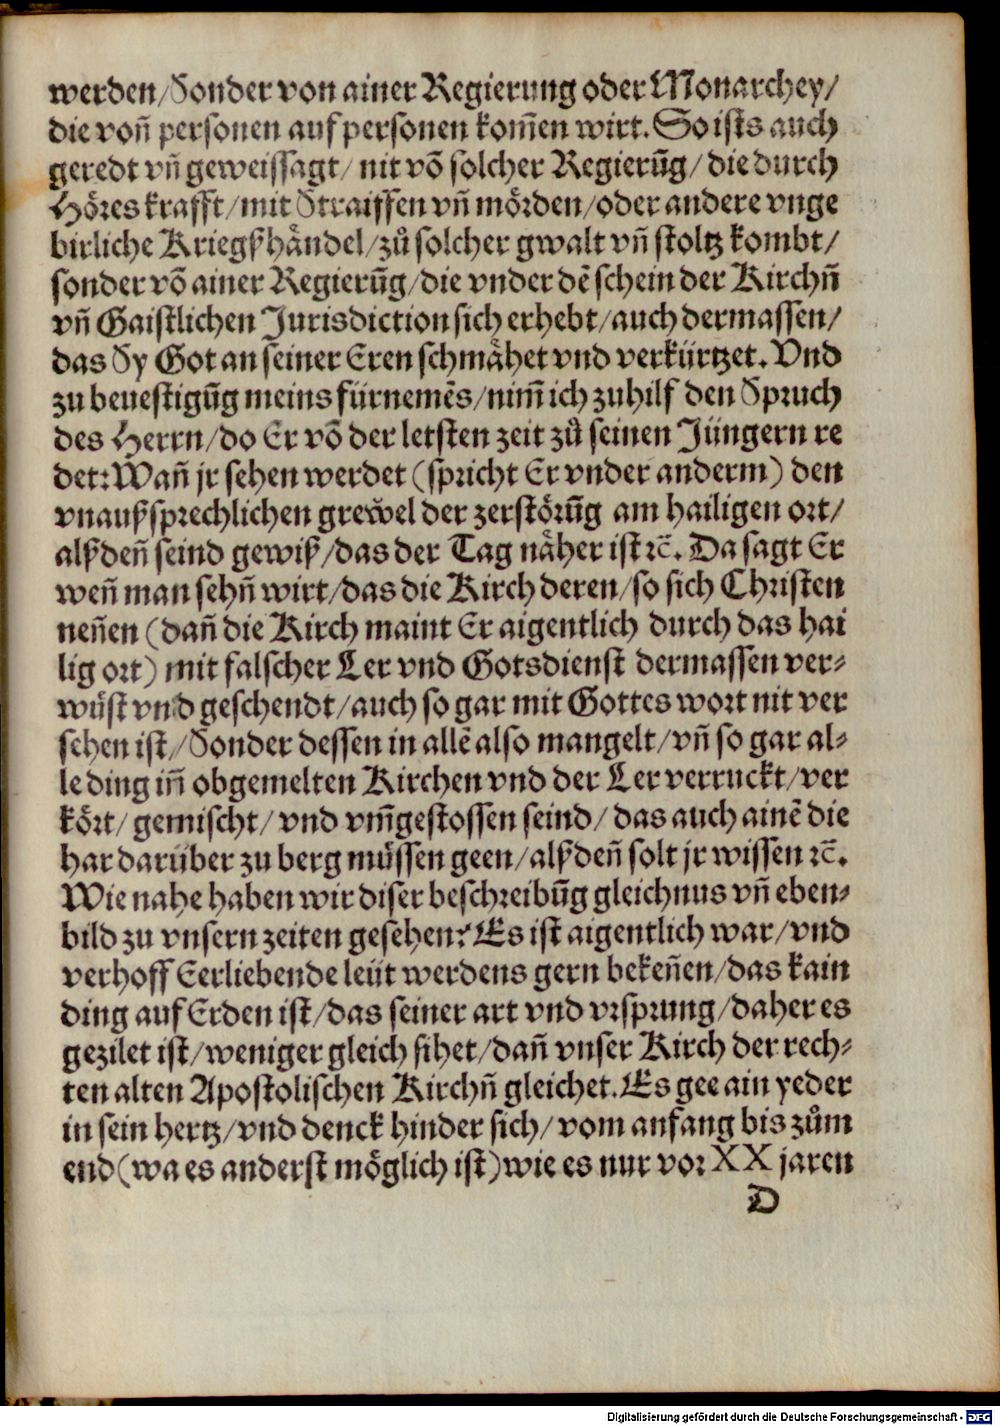 werden/Sonder von ainer Regierung oder Monarchey/
die voñ personen auf personen kom̃en wirt. So ists auch
geredt vñ geweissagt/ nit võ solcher Regierũg/ die durch
Höres krafft/ mit Straiffen vñ mörden/ oder andere vnge
birliche Kriegßhändel/ zů solcher gwalt vñ stoltz kombt/
sonder võ ainer Regierũg/ die vnder dẽ schein der Kirchñ
vñ Gaistlichen Jurisdiction sich erhebt/ auch dermassen/
das Sy Got an seiner Eren schmähet vnd verkürtzet. Vnd
zu beuestigũg meins fürnemẽs/ nim̃ ich zuhilf den Spruch
des Herrn/ do Er võ der letsten zeit zů seinen Jüngern re
det: Wañ jr sehen werdet (spricht Er vnder anderm) den
vnaußsprechlichen grewel der zerstörũg am hailigen ort/
alßdeñ seind gewiß/ das der Tag näher ist ꝛc̃. Da sagt Er
weñ man sehñ wirt/ das die Kirch deren/ so sich Christen
neñen (dañ die Kirch maint Er aigentlich durch das hai
lig ort) mit falscher Ler vnd Gotsdienst dermassen ver⸗
wüst vnd geschendt/ auch so gar mit Gottes wort nit ver
sehen ist/ Sonder dessen in allẽ also mangelt/ vñ so gar al⸗
le ding iñ obgemelten Kirchen vnd der Ler verruckt/ ver
kört/ gemischt/ vnd vm̃gestossen seind/ das auch ainẽ die
har darüber zu berg müssen geen/ alßdeñ solt jr wissen ꝛc̃.
Wie nahe haben wir diser beschreibũg gleichnus vñ eben⸗
bild zu vnsern zeiten gesehen? Es ist aigentlich war/ vnd
verhoff Eerliebende leüt werdens gern bekeñen/ das kain
ding auf Erden ist/ das seiner art vnd vrsprung/ daher es
gezilet ist/ weniger gleich sihet/ dañ vnser Kirch der rech⸗
ten alten Apostolischen Kirchñ gleichet. Es gee ain yeder
in sein hertz/ vnd denck hinder sich/ vom anfang bis zům
end (wa es anderst möglich ist) wie es nur vor XX jaren
D
Digitalisierung gefördert durch die Deutsche Forschungsgemeinschaft - DFG